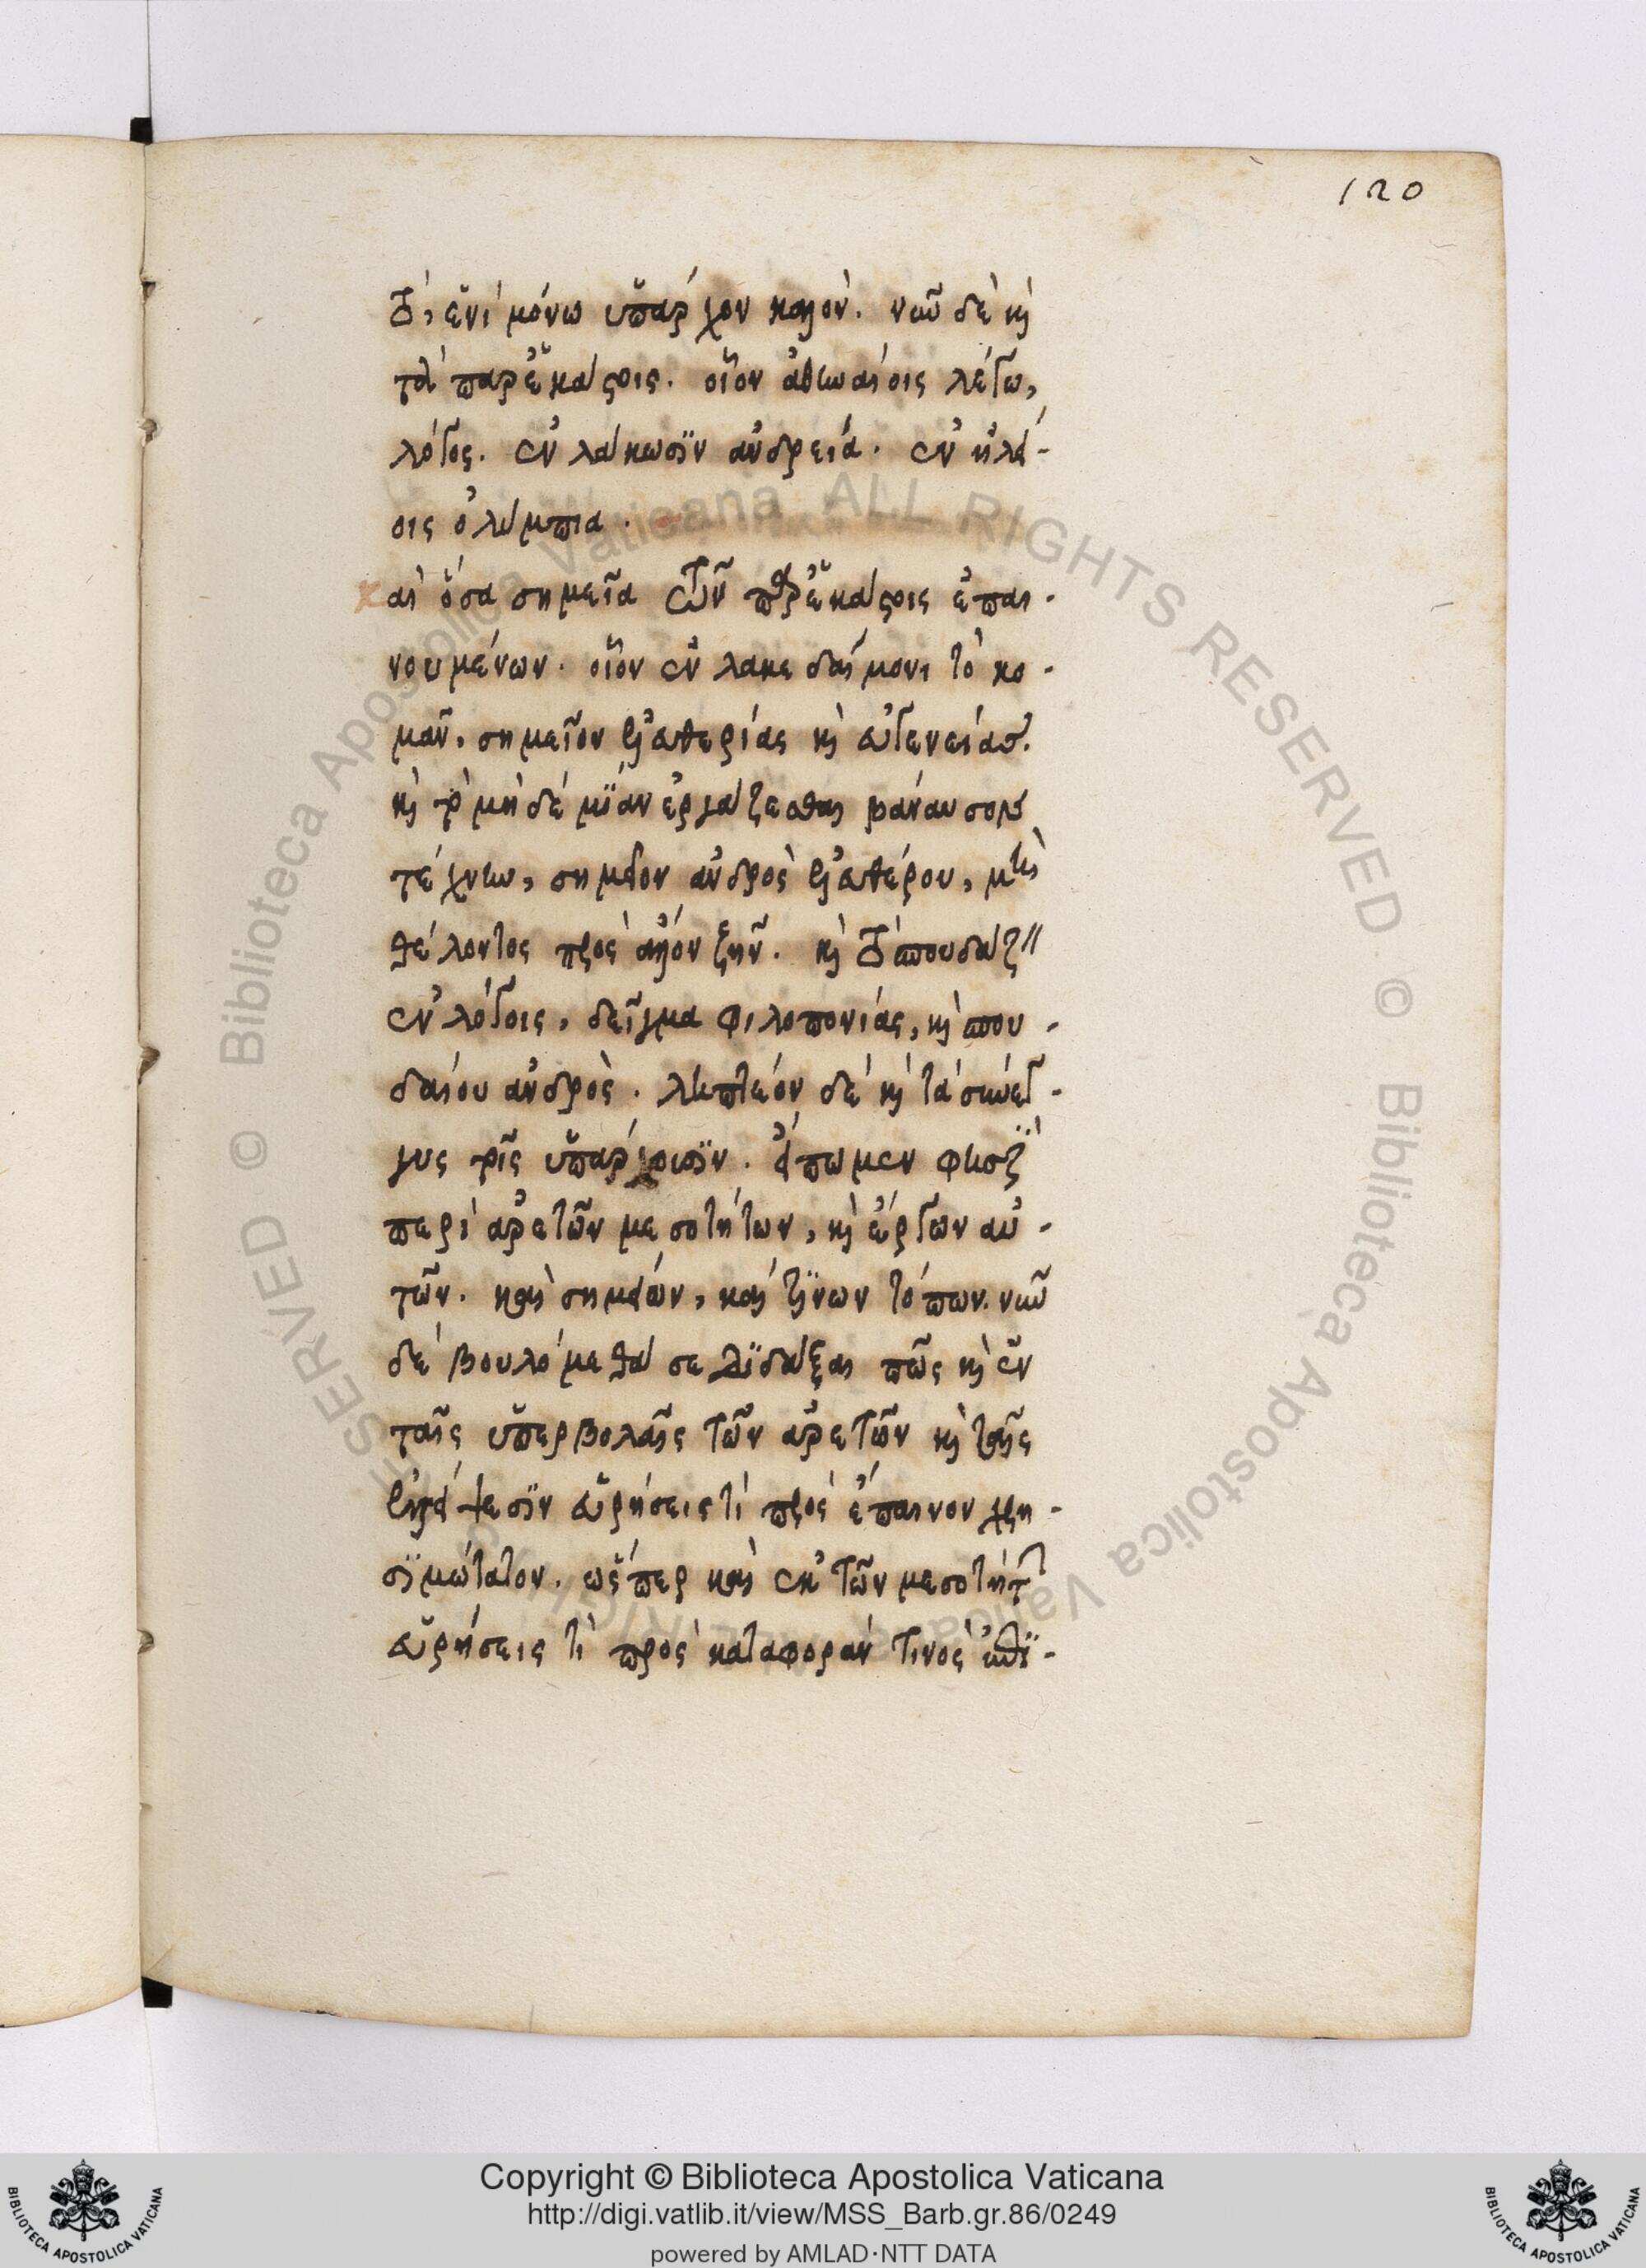 120
τὸ, ἑνὶ μόνω ὑπάρχον καλόν. νῦν δὲ καὶ
τὰ παρ' ἑκάστοις. οἷον ἀθηναίοις λέγω,
λόγος. ἐν λάκωσϊν ἀνδρεία. ἐν ἠλεί-
οις ὀλύμπια.
Καὶ ὅσα σημεῖα τῶν παρ' ἑκάστοις ἐπαι-
νουμένων. οἷον ἐν λακεδαίμονι τὸ κο-
μᾶν, σημεῖον ἐλευθερίας καὶ εὐγενείας.
καὶ τὸ μὴ δὲ μΐαν ἐργάζεσθαι βάναυσον
τέχνην, σημεῖον ἀνδρὸς ἐλευθέρου, μὴ
θέλοντος πρὸς ἄλλον ζῆν. καὶ τὸ σπουδάζειν
ἐν λόγοις, δεῖγμα φιλοπονίας, καὶ σπου-
δαίου ἀνδρὸς. ληπτέον δὲ καὶ τὰ σύνεγ-
γυς τοῖς ὑπάρχουσϊν. εἴπωμεν
περὶ ἀρετῶν μεσοτήτων, καὶ ἔργων αὐ-
τῶν. καὶ σημείων, καὶ τΐνων τόπων. νῦν
δὲ βουλόμεθά σε δϊδάξαι πῶς καὶ ἐν
ταῖς ὑπερβολαῖς τῶν ἀρετῶν καὶ ταῖς
ἐλλείψεσϊν εὑρήσεις τὶ πρὸς ἔπαινον χρη-
σϊμώτατον. ὥσπερ καὶ ἐκ τῶν μεσοτήτων
εὑρήσεις τὶ πρὸς καταφορὰν τινὸς ἐπϊ-
Copyright © Biblioteca Apostolica Vaticana
http://digi.vatlib.it/view/MSS_Barb.gr.86/0249
powered by AMLAD·NTT DATA